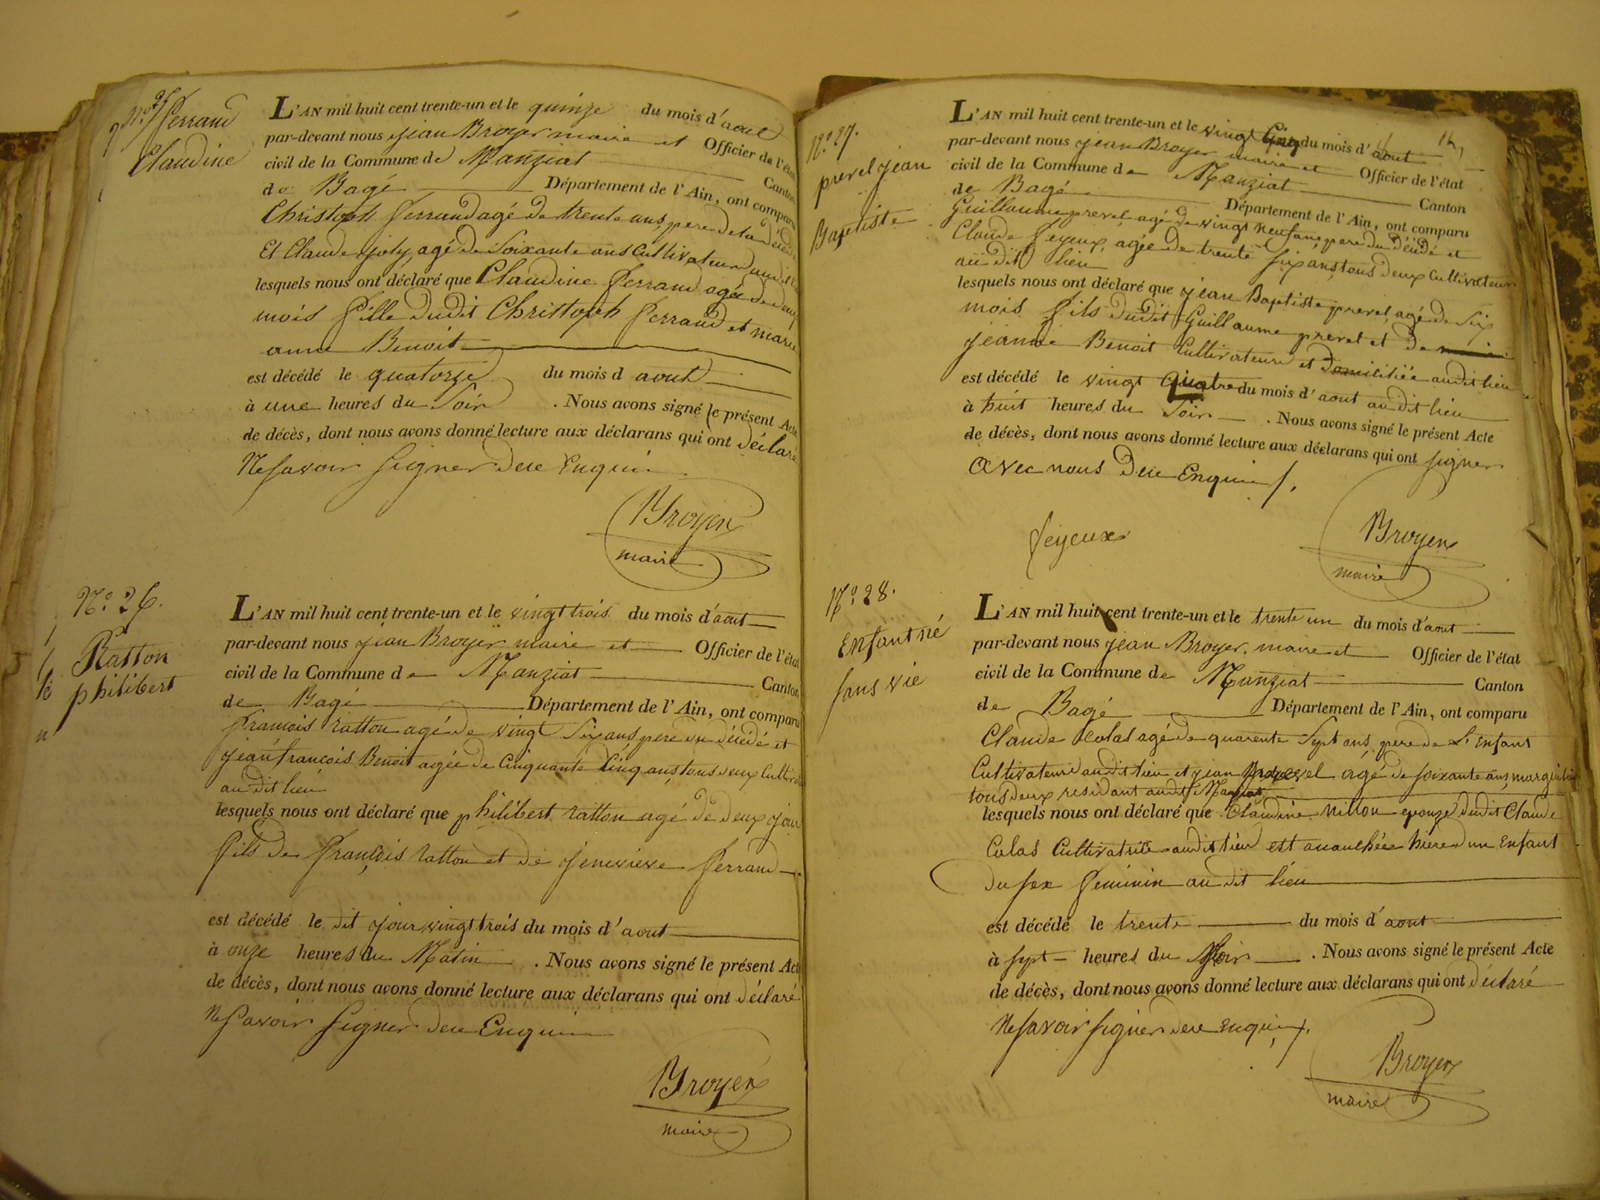 ferrand
Claudine
L'AN mil huit cent trente-un et le quinze du mois d'aout
par-devant nous jean Broyer maire et Officier de l'état
civil de la Commune de Manziat Canton
de Bagé Département de l'Ain, ont comparu
Christoph ferrand agé de trente ans, pere de la
Et Claude joly agé de Soixante ans Cultivateurs
lesquels nous ont déclaré que Claudine ferrand agée de deux
mois fille dudit Christoph ferrand et marie
anne Benoit
est décédé le quatorze du mois d aout
à une heures du Soir . Nous avons signé le présent Acte
de décès, dont nous avons donné lecture aux déclarans qui ont déclaré
Ne Savoir Signer dece Enquis
Broyer
maire
N.o 26.
Ratton
philibert
L'AN mil huit cent trente-un et le vingt trois du mois d'aout
par-devant nous jean Broyer maire et Officier de l'état
civil de la Commune de Manziat Canton
de Bagé Département de l'Ain, ont comparu
francois ratton agé de vingt Six ans pere du décédé et
jean francois Benoit agée de Cinquante Cinq ans, tous deux Cultiv
au dit lieu
lesquels nous ont déclaré que philibert ratton agé de deux jour
fils de françois ratton et de jenevieve ferrand
est décédé le dit jour vingt trois du mois d'aout
à onze heures du Matin . Nous avons signé le présent Acte
de décès, dont nous avons donné lecture aux déclarans qui ont déclaré
Ne Savoir Signer dece Enquis
Broyer
maire
N.o 27.
prevel jean
Baptiste
L'AN mil huit cent trente-un et le vingt Cinq du mois d'aout
par-devant nous jean Broyer maire et Officier de l'état
civil de la Commune de Manziat Canton
de Bagé Département de l'Ain, ont comparu
Guillaume prevel agé de vingt neuf ans, pere du décédé et
Claude feyeux, agée de trente Six ans, tous deux Cultivateurs
au dit lieu
lesquels nous ont déclaré que jean Baptiste prevel, agé de Six
mois fils dudit Guillaume prevel et de
jeanne Benoit Cultivateure et domiciliée audit lieu
est décédé le vingt quatre du mois d'aout au dit lieu
à huit heures du Soir . Nous avons signé le présent Acte
de décès, dont nous avons donné lecture aux déclarans qui ont signer
avec nous dece Enquis
feyeux
Broyer
maire
N.o 28.
Enfant né
sans vie
L'AN mil huit cent trente-un et le trente un du mois d'aout
par-devant nous jean Broyer, maire et Officier de l'état
civil de la Commune de Manziat Canton
de Bagé Département de l'Ain, ont comparu
Claude Colas agé de quarente Sept ans, pere de L'Enfant
Cultivateur audit lieu et jean agé de soixante ans,
tous deux residant audit Manziat
lesquels nous ont déclaré que Claudine Nillon epouze dudit Claude
Colas Cultivatrice audit lieu est acouchée hiere d'un Enfant
du sex feminin au dit lieu
est décédé le trente du mois d'aout
à sept heures du Soir . Nous avons signé le présent Acte
de décès, dont nous avons donné lecture aux déclarans qui ont déclaré
Ne savoir signer dece enquis
Broyer
maire